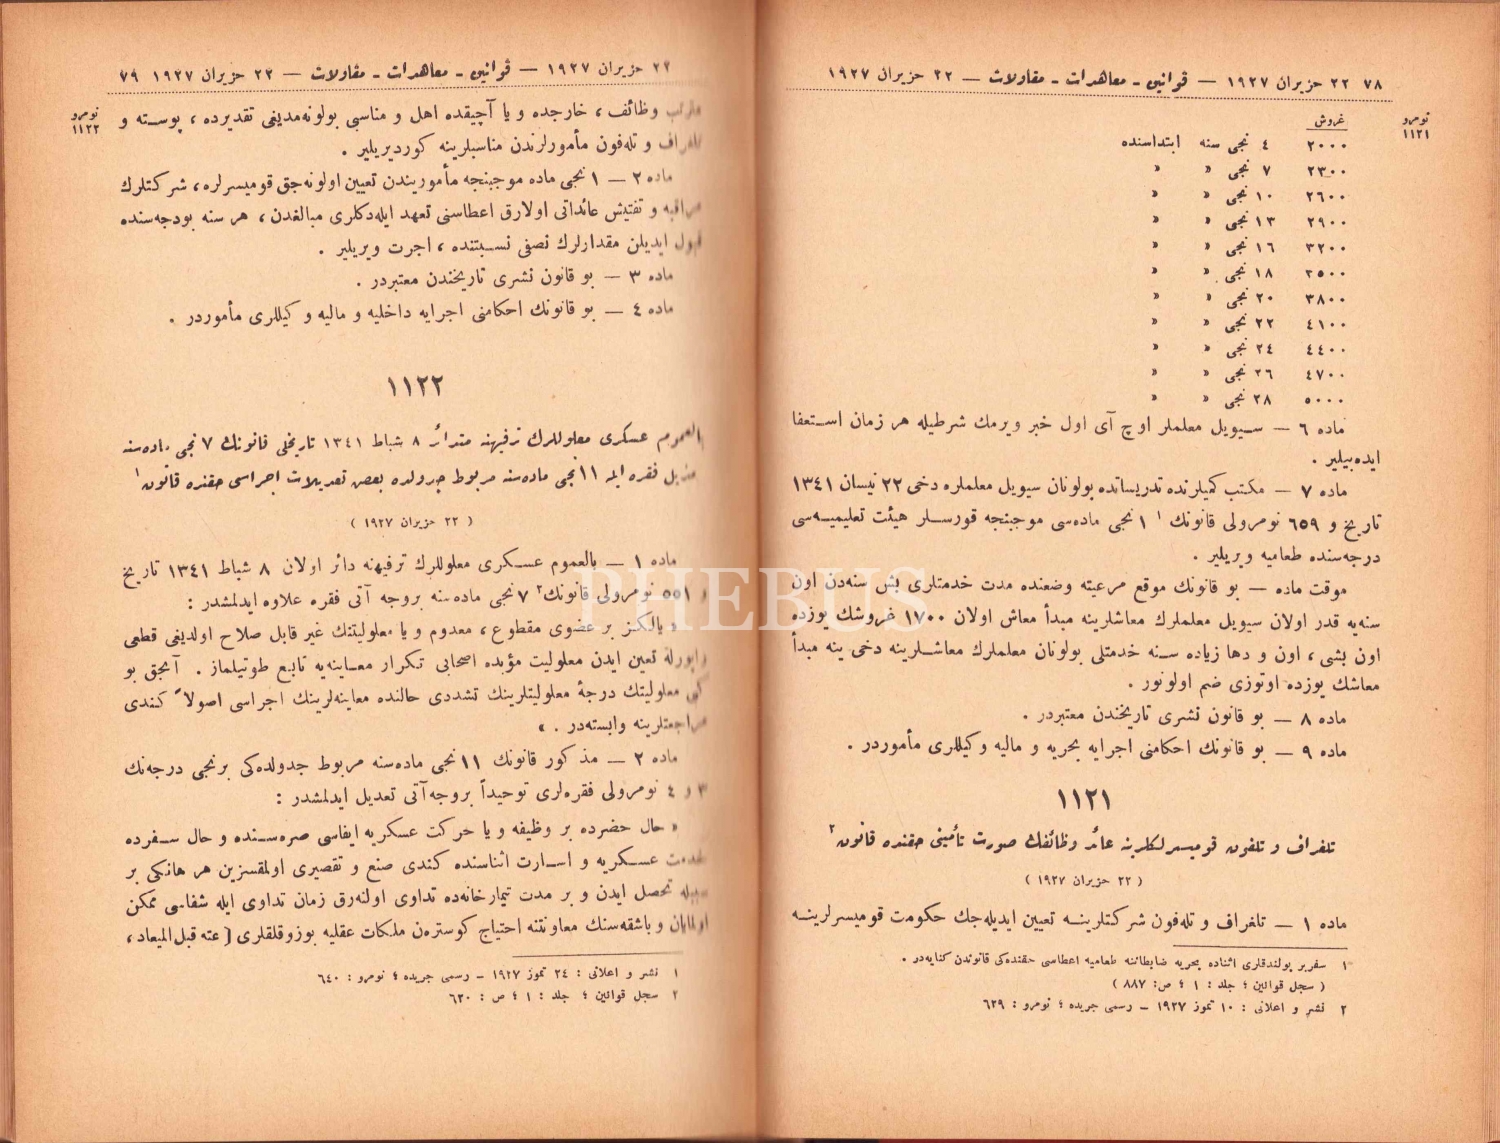 ٧٨ ٢٢ حزيران ١٩٢٧ — قوانين ـ معاهدات ـ مقاولات — ٢٢ حزيران ١٩٢٧
نومرو
١١٢١
غروش
٢٠٠٠ ٤ نجی سنه ابتداسنده
٢٣٠٠ ٧ نجی » »
٢٦٠٠ ١٠ نجی » »
٢٩٠٠ ١٣ نجی » »
٣٢٠٠ ١٦ نجی » »
٣٥٠٠ ١٨ نجی » »
٣٨٠٠ ٢٠ نجی » »
٤١٠٠ ٢٢ نجی » »
٤٤٠٠ ٢٤ نجی » »
٤٧٠٠ ٢٦ نجی » »
٥٠٠٠ ٢٨ نجی » »
ماده ٦ — سيويل معلملر اوچ آی اول خبر ويرمك شرطيله هر زمان استعفا
ايده‌بيلير .
ماده ٧ — مكتب كميلرنده تدريساتده بولونان سيويل معلملره دخی ٢٢ نيسان ١٣٤١
تاريخ و ٦٥٩ نومرولی قانونك ١ ١ نجی ماده‌سی موجبنجه قورسلر هيئت تعليميه‌سی
درجه‌سنده طعاميه ويريلير .
موقت ماده — بو قانونك موقع مرعيته وضعنده مدت خدمتلری بش سنه‌دن اون
سنه‌يه قدر اولان سيويل معلملرك معاشلرينه مبدأ معاش اولان ١٧٠٠ غروشك يوزده
اون بشی ، اون و دها زياده سنه خدمتلی بولونان معلملرك معاشلرينه دخی ينه مبدأ
معاشك يوزده اوتوزی ضم اولونور .
ماده ٨ — بو قانون نشری تاريخندن معتبردر .
ماده ٩ — بو قانونك احكامنی اجرايه بحريه و ماليه وكيللری مأموردر .
١١٢١
تلغراف و تلفون قوميسرلكلرينه عائد وظائفك صورت تأمينی حقنده قانون ٢
( ٢٢ حزيران ١٩٢٧ )
ماده ١ — تلغراف و تله‌فون شركتلرينه تعيين ايديله‌جك حكومت قوميسرلرينه
١ سفربر بولندقلری اثناده بحريه ضابطاننه طعاميه اعطاسی حقنده‌كی قانوندن كنايه‌در .
( سجل قوانين ؛ جلد : ١ ؛ ص: ٨٨٧ )
٢ نشر و اعلانی : ١٠ تموز ١٩٢٧ – رسمی جريده ؛ نومرو : ٦٢٩
٢٢ حزيران ١٩٢٧ — قوانين ـ معاهدات ـ مقاولات — ٢٢ حزيران ١٩٢٧ ٧٩
نومرو
١١٢٢
وظائف ، خارجده و يا آچيقده اهل و مناسبی بولونه‌مديغی تقديرده ، پوسته و
تلغراف و تله‌فون مأمورلرندن مناسبلرينه كورديريلير .
ماده ٢ — ١ نجی ماده موجبنجه مأموريندن تعيين اولونه‌جق قوميسرلره ، شركتلرك
مراقبه و تفتيش عائداتی اولارق اعطاسنی تعهد ايله‌دكلری مبالغدن ، هر سنه بودجه‌سنده
قبول ايديلن مقدارلرك نصفی نسبتنده ، اجرت ويريلير .
ماده ٣ — بو قانون نشری تاريخندن معتبردر .
ماده ٤ — بو قانونك احكامنی اجرايه داخليه و ماليه وكيللری مأموردر .
١١٢٢
بالعموم عسكری معلوللرك ترفيهنه متدائر ٨ شباط ١٣٤١ تاريخلی قانونك ٧ نجی ماده‌سنه
مذيل فقره ايله ١١ نجی ماده‌سنه مربوط جدولده بعض تعديلات اجراسی حقنده قانون ١
( ٢٢ حزيران ١٩٢٧ )
ماده ١ — بالعموم عسكری معلوللرك ترفيهنه دائر اولان ٨ شباط ١٣٤١ تاريخ
و ٥٥١ نومرولی قانونك ٢ ٧ نجی ماده‌سنه بروجه آتی فقره علاوه ايدلمشدر :
« يالكز بر عضوی مقطوع ، معدوم و يا معلوليتنك غير قابل صلاح اولديغی قطعی
راپورله تعين ايدن معلوليت مؤبده اصحابی تكرار معاينه‌يه تابع طوتيلماز . آنجق بو
كبی معلوليتك درجهٔ معلوليتلرينك تشددی حالنده معاينه‌لرينك اجراسی اصولاً كندی
مراجعتلرينه وابسته‌در . »
ماده ٢ — مذكور قانونك ١١ نجی ماده‌سنه مربوط جدولده‌كی برنجی درجه‌نك
٣ و ٤ نومرولی فقره‌لری توحيداً بروجه آتی تعديل ايدلمشدر :
« حال حضرده بر وظيفه و يا حركت عسكريه ايفاسی صره‌سنده و حال سفرده
خدمت عسكريه و اسارت اثناسنده كندی صنع و تقصيری اولمقسزين هر هانكی بر
سببله تحصل ايدن و بر مدت تيمارخانه‌ده تداوی اولنه‌رق زمان تداوی ايله شفاسی ممكن
اولمايان و باشقه‌سنك معاونتنه احتياج كوسترەن ملكات عقليه بوزوقلقلری ( عته قبل الميعاد ،
١ نشر و اعلانی : ٢٤ تموز ١٩٢٧ – رسمی جريده ؛ نومرو : ٦٤٠
٢ سجل قوانين ؛ جلد : ١ ؛ ص : ٦٣٠
PHEBUS